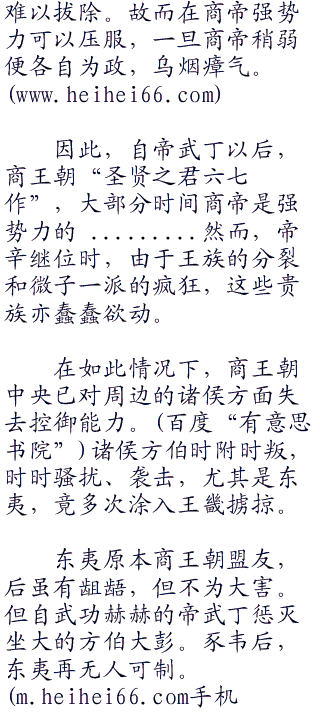 难以拔除。故而在商帝强势
力可以压服，一旦商帝稍弱
便各自为政，乌烟瘴气。
(www.heihei66.com)
因此，自帝武丁以后，
商王朝“圣贤之君六七
作”，大部分时间商帝是强
势力的 .........然而，帝
辛继位时，由于王族的分裂
和微子一派的疯狂，这些贵
族亦蠢蠢欲动。
在如此情况下，商王朝
中央已对周边的诸侯方面失
去控御能力。(百度“有意思
书院”)诸侯方伯时附时叛，
时时骚扰、袭击，尤其是东
夷，竟多次涂入王畿掳掠。
东夷原本商王朝盟友，
后虽有龃龉，但不为大害。
但自武功赫赫的帝武丁惩灭
坐大的方伯大彭。豕韦后，
东夷再无人可制。
(m.heihei66.com手机